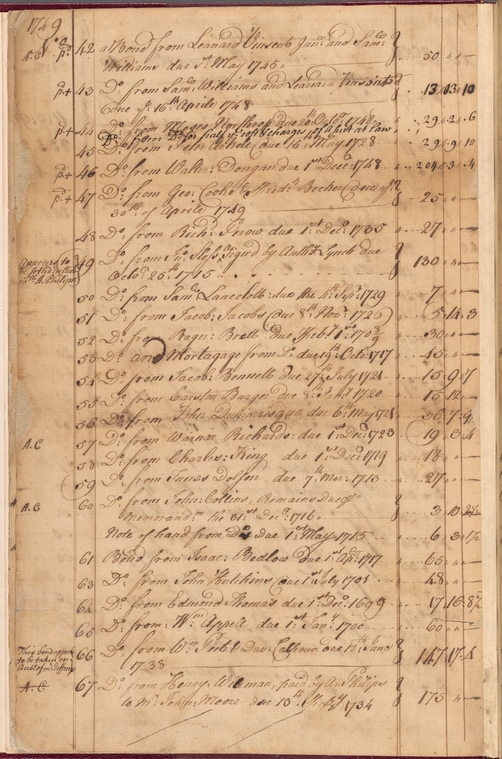 1749
A:C p.d 42 a Bond from Leanard Vinsent, Junr. and Saml.
Williams due 1st. May 1745 50 " — " —
pd + 43 Do. from Saml. Williams and Leanard Vinsent
Due ye. 16th. Aprile 1748 13 " 13 " 10
pd + 44 Do. from Moses Northrop due 20th. Octor. 1748 29 " 2 " 6
charges of a Suit at Law
45 Do. from Peter due 16 May 1728 29 " 9 " 10
pd + 46 Do. from Walter Dongan due 1st. Decr. 1748 204 " 3 " 4
pd + 47 Do. from Geo: Cook & Fredk. Becker due ye.
30th. of Aprile 1749 25 " — " —
48 Do. from Richd. Snow due 1st. Decr. 1735 27 " — " —
Appears to be
49 Do. from Signd by Anthy. Lynch due
Octor. 25th. 1745 130 " — " —
50 Do. from Saml. Lancelott due the 4th. Sepr. 1729 7 " — " —
51 Do. from Jacob: Jacobs due 8th. Novr. 1725 5 " 14 " 3
52 Do. from Roger: Brett due Feby. 1st. 1709 30 " — " —
53 Do. and Mortagage from Do. due 19th. Octor. 1717 40 " — " —
54 Do. from Jacob: Bennett due 27th. July 1721 15 " 9 " 7
55 Do. from Carsten Burger due 1720 16 " 12 " —
56 Do. from John due 6th. May 1721 36 " 7 " 9
A:C 57 Do. from Warnar Richards: due 1st. Decr. 1723 19 " 3 " 4
58 Do. from Charles: King due 1st. Decr. 1719 18 " — " —
59 Do. from Tunes Dolson due 7th. Mar: 1713 27 " — " —
A:C 60 Do. from John: Collins, Remains due pr.
Memorandm. the 31st. Decr. 1716 3 " 10 " 2½
Note of hand from Do. due 1st. May 1715 6 " 3 " 1½
61 Bond from Isaac: Bedlow due 1st. Apr. 1717 65 " — " —
63 Do. from John Hutchins due 1st. July 1701 48 " — " —
64 Do. from Edmund Thomas due 1st. Decr. 1699 17 " 16 " 8½
65 Do. from: Wm. Apple due 1st. Janr. 1700 60 " — " —
This bond appears
to be taken on
66 Do. from Wm. Peet & Davd. Calhoun due 1st. Janr.
1738 147 " 17 " 4
A:C 67 Do. from Henry Wileman, paid by A: Philips
to Mr. John Moore due 15th. Feby. 1734 175 " — " —